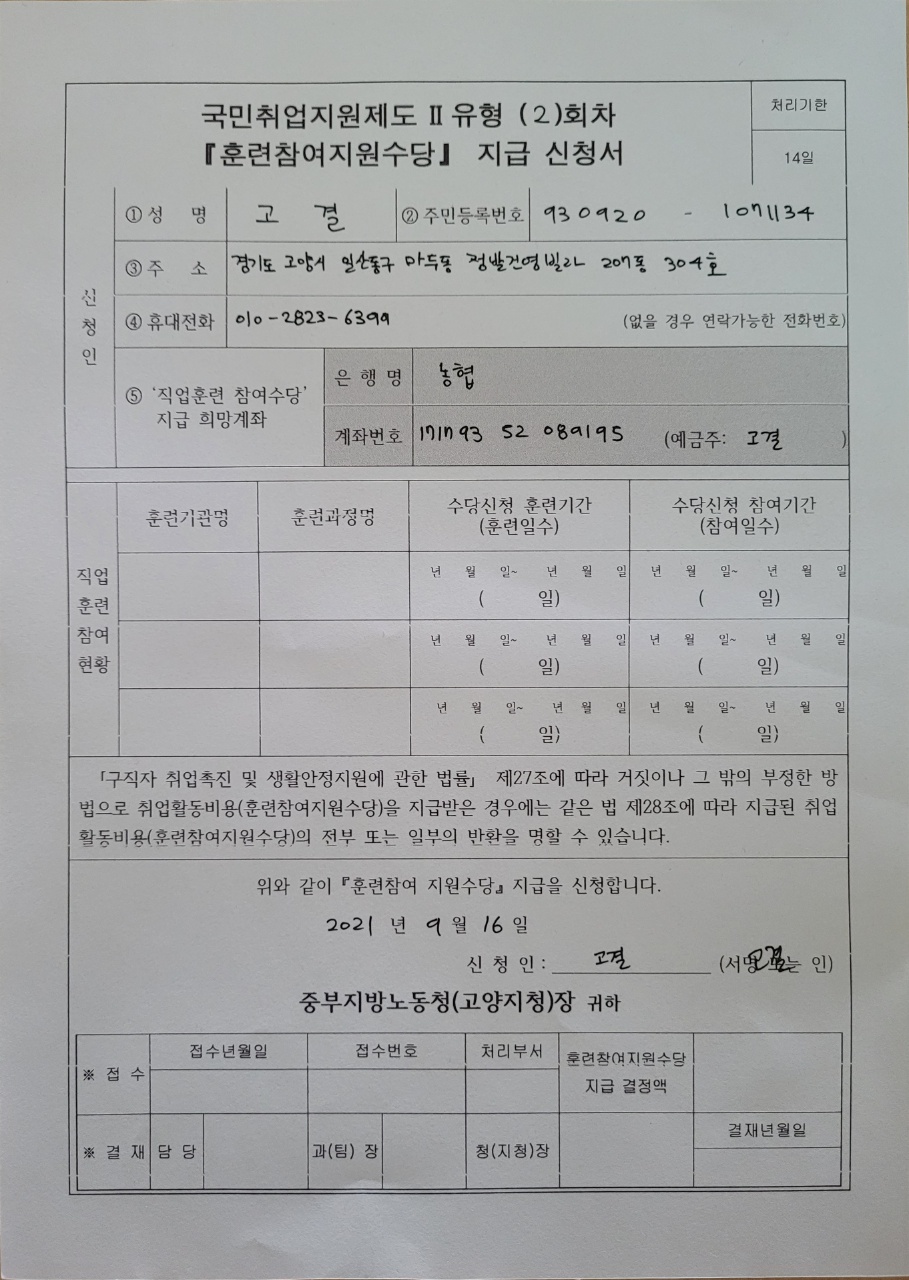 국민취업지원제도 Ⅱ유형 (2)회차
『훈련참여지원수당』 지급 신청서
처리기한
14일
신청인
① 성 명 고 결 ② 주민등록번호 930920 - 1071134
③ 주 소 경기도 고양시 일산동구 마두동 정발건영빌라 207동 304호
④ 휴대전화 010-2823-6399 (없을 경우 연락가능한 전화번호)
⑤ '직업훈련 참여수당'
지급 희망계좌
은 행 명 농협
계좌번호 171793 52 089195 (예금주: 고결 )
직업
훈련
참여
현황
훈련기관명 훈련과정명 수당신청 훈련기간 수당신청 참여기간
(훈련일수) (참여일수)
년 월 일~ 년 월 일 년 월 일~ 년 월 일
( 일) ( 일)
년 월 일~ 년 월 일 년 월 일~ 년 월 일
( 일) ( 일)
년 월 일~ 년 월 일 년 월 일~ 년 월 일
( 일) ( 일)
「구직자 취업촉진 및 생활안정지원에 관한 법률」 제27조에 따라 거짓이나 그 밖의 부정한 방
법으로 취업활동비용(훈련참여지원수당)을 지급받은 경우에는 같은 법 제28조에 따라 지급된 취업
활동비용(훈련참여지원수당)의 전부 또는 일부의 반환을 명할 수 있습니다.
위와 같이 『훈련참여 지원수당』 지급을 신청합니다.
2021 년 9 월 16 일
신 청 인 : 고결 (서명 또는 인) 고결
중부지방노동청(고양지청)장 귀하
※ 접 수 접수년월일 접수번호 처리부서 훈련참여지원수당
지급 결정액
※ 결 재 담 당 과(팀) 장 청(지청)장 결재년월일